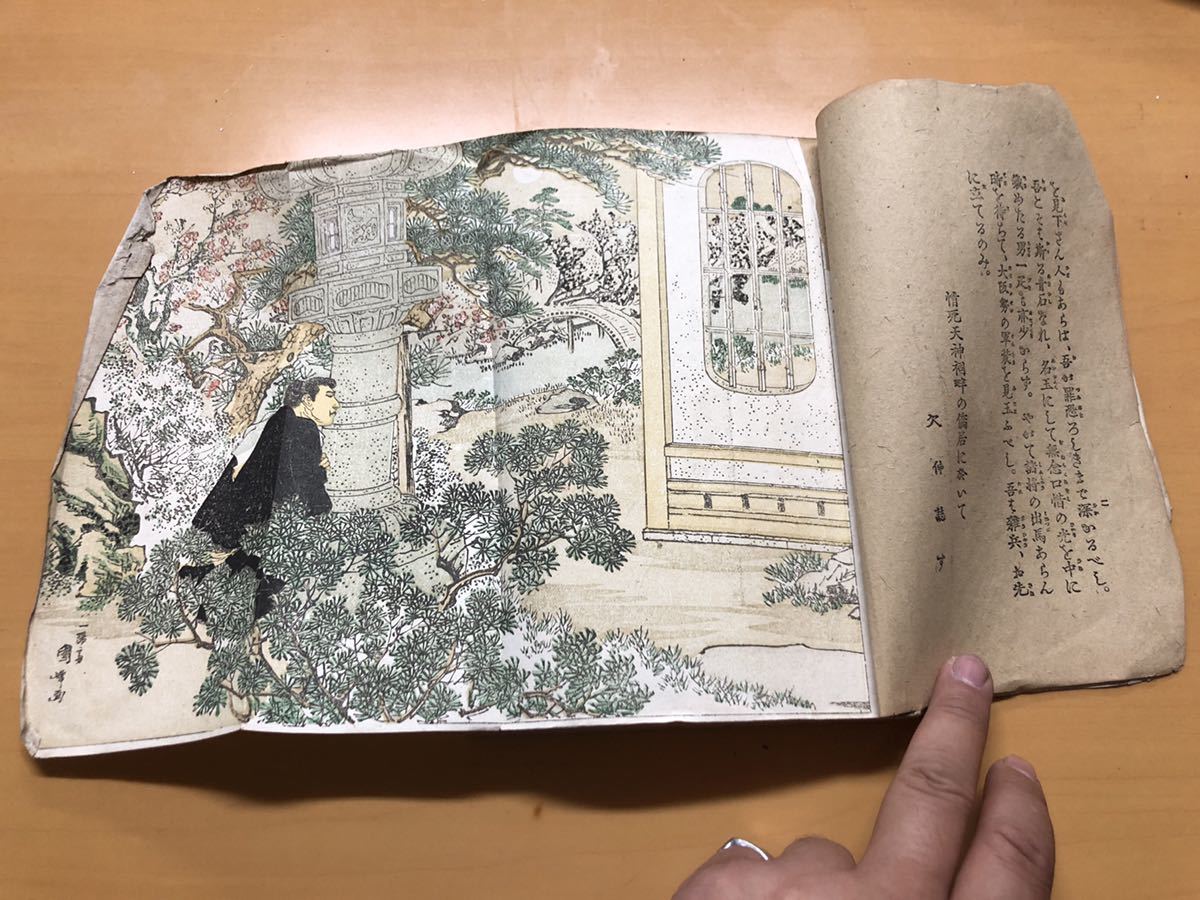 を見下さん人もあらば、吾が罪恐ろしきまで深かるべし。
吾とそも斯る骨石なれ、名玉にして無念口惜の光を中に
籠めたる男一疋も亦少からず。やがて諸将の出馬あらん
時を待ちて、大阪勢の軍装を見玉ふべし。吾は雑兵、お先
に立てるのみ。
情死天神祠畔の僑居に於いて
欠伸誌す